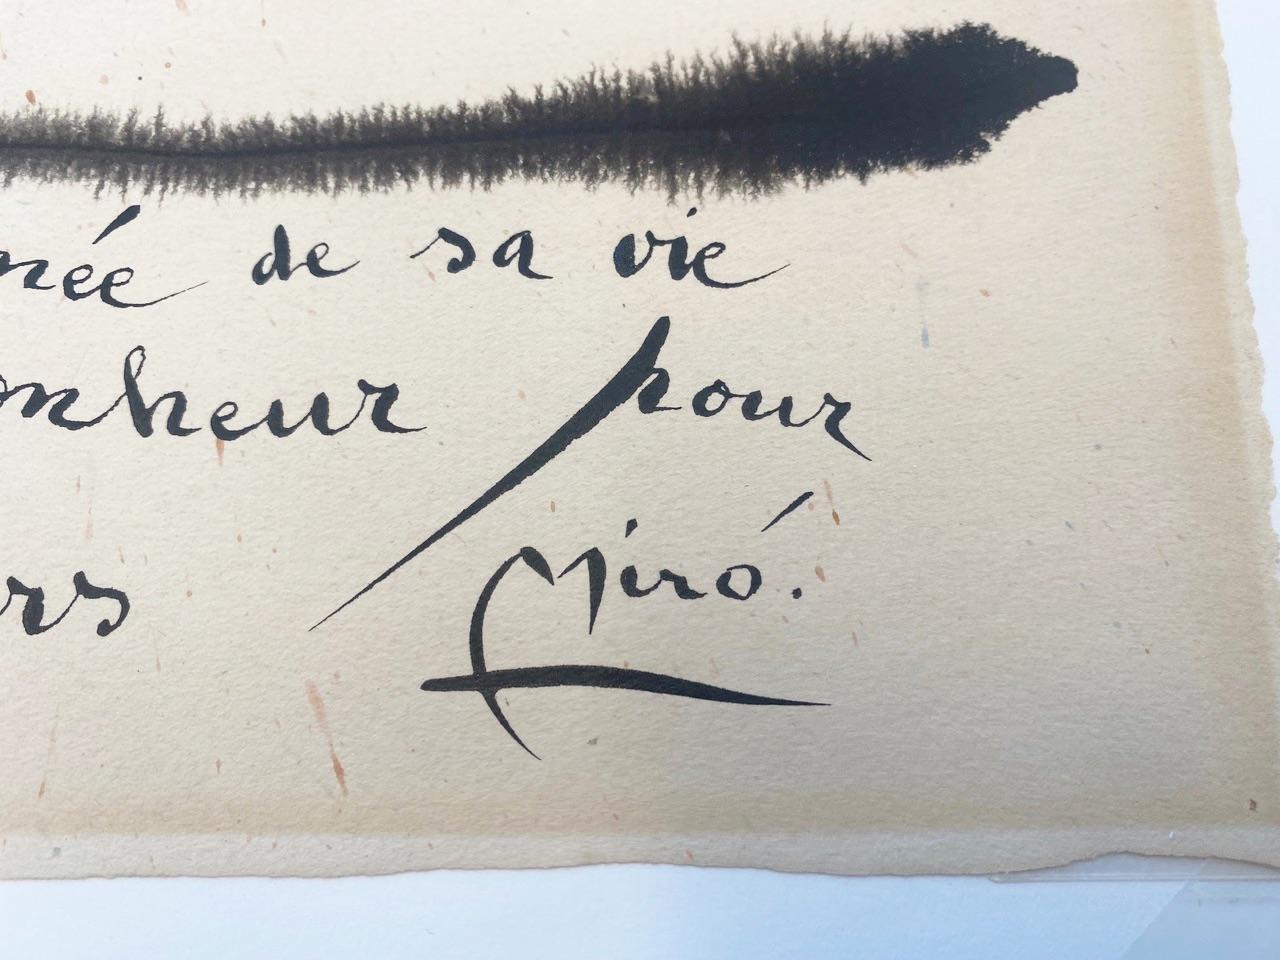 née de sa vie
onheur pour
rs Miró.